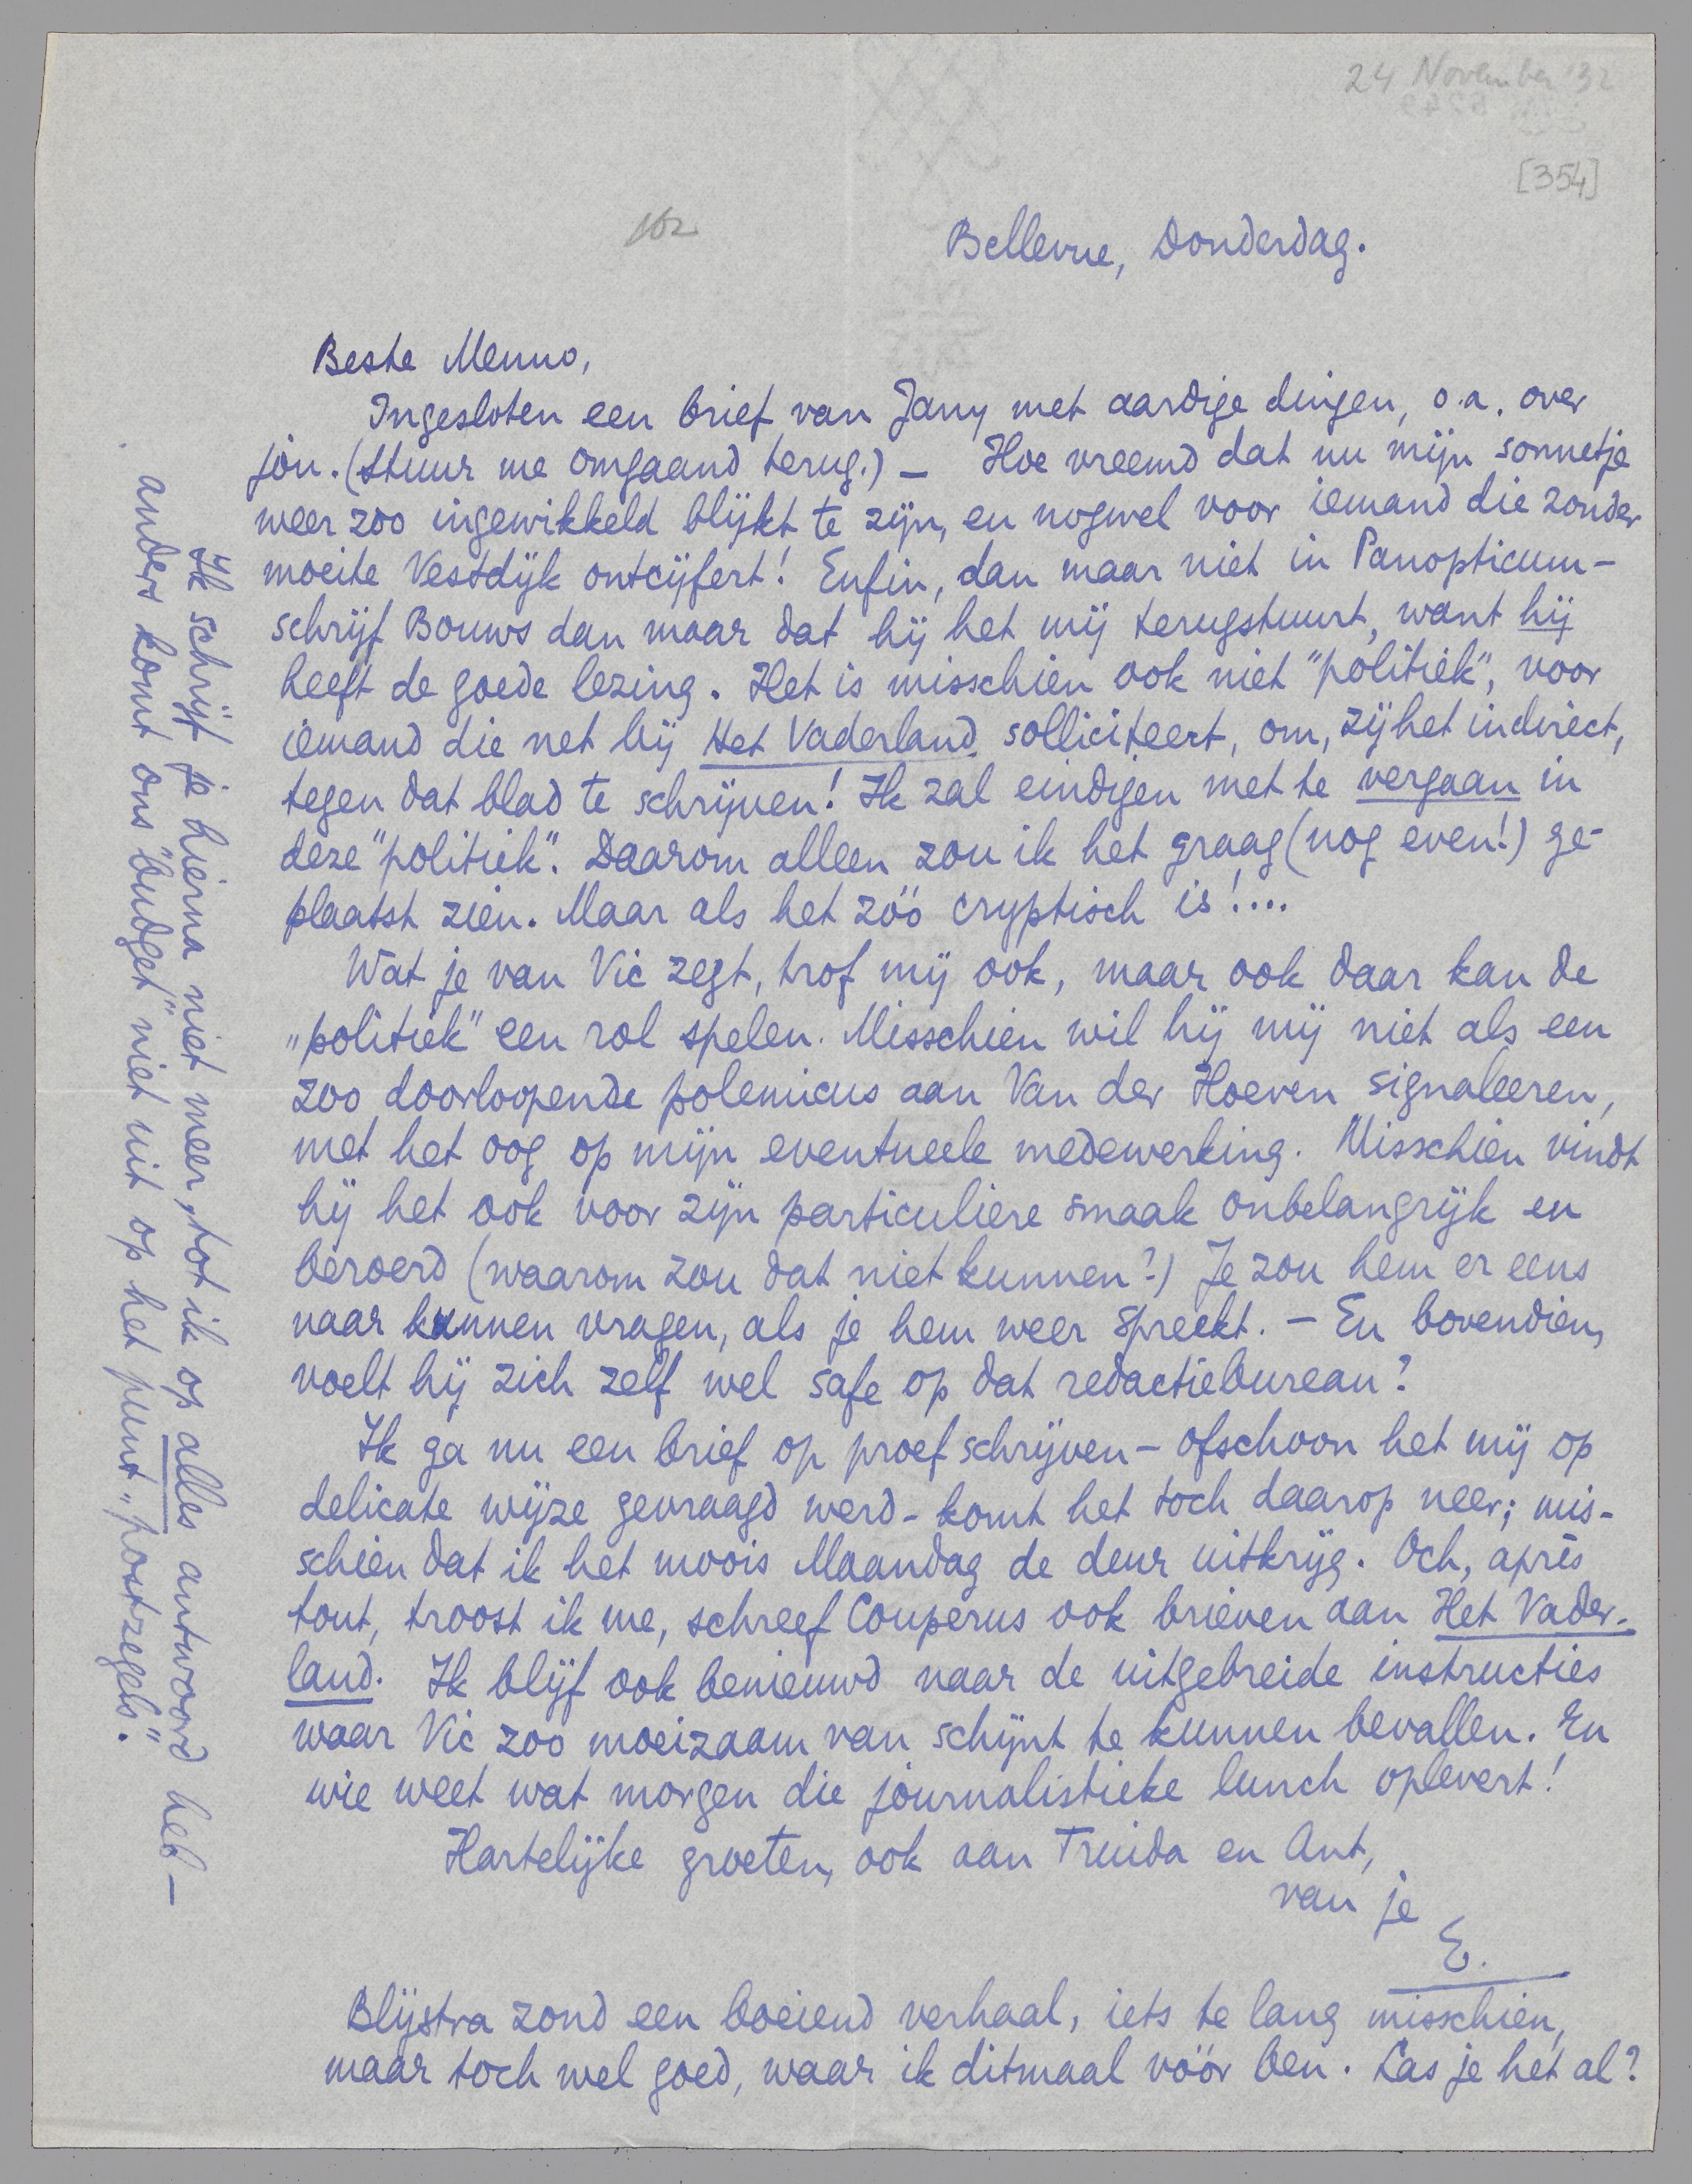 24 November '32
[354]
162
Bellevue, Donderdag.
Beste Menno,
Ingesloten een brief van Jany met aardige dingen, o.a. over
jou. (Stuur me omgaand terug.) — Hoe vreemd dat nu mijn sonnetje
weer zoo ingewikkeld blijkt te zijn, en nogwel voor iemand die zonder
moeite Vestdijk ontcijfert! Enfin, dan maar niet in Panopticum -
schrijf Bouws dan maar dat hij het mij terugstuurt, want hij
heeft de goede lezing. Het is misschien ook niet "politiek", voor
iemand die net bij Het Vaderland solliciteert, om, zij het indirect,
tegen dat blad te schrijven! Ik zal eindigen met te vergaan in
deze "politiek". Daarom alleen zou ik het graag (nog even!) ge-
plaatst zien. Maar als het zóó cryptisch is!....
Wat je van Vic zegt, trof mij ook, maar ook daar kan de
„politiek" een rol spelen. Misschien wil hij mij niet als een
zoo doorloopende polemicus aan Van der Hoeven signaleeren,
met het oog op mijn eventueele medewerking. Misschien vindt
hij het ook voor zijn particuliere smaak onbelangrijk en
beroerd (waarom zou dat niet kunnen?) Je zou hem er eens
naar kunnen vragen, als je hem weer spreekt. — En bovendien,
voelt hij zich zelf wel safe op dat redactiebureau?
Ik ga nu een brief op proef schrijven - ofschoon het mij op
delicate wijze gevraagd werd - komt het toch daarop neer; mis-
schien dat ik het moois Maandag de deur uitkrijg. Och, après
tout, troost ik me, schreef Couperus ook brieven aan Het Vader-
land. Ik blijf ook benieuwd naar de uitgebreide instructies
waar Vic zoo moeizaam van schijnt te kunnen bevallen. En
wie weet wat morgen die journalistieke lunch oplevert!
Hartelijke groeten, ook aan Truida en Ant,
van je
E.
Blijstra zond een boeiend verhaal, iets te lang misschien,
maar toch wel goed, waar ik ditmaal vóór ben. Las je het al?
Ik schrijf je hierna niet meer, tot ik op alles antwoord heb —
anders komt ons "budget" niet uit op het punt „postzegels".